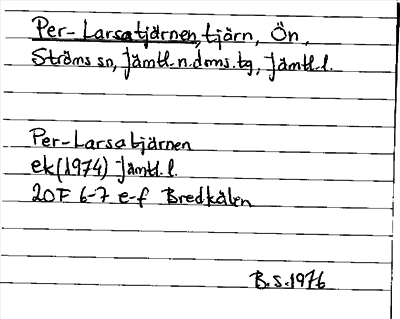 Per-Larsatjärnen, tjärn, Ön,
Ströms sn, Jämtl.n.doms.tg, Jämtl.l.
Per-Larsatjärnen
ek(1974) Jämtl.l.
20F 6-7 e-f Bredkälen
B.S.1976